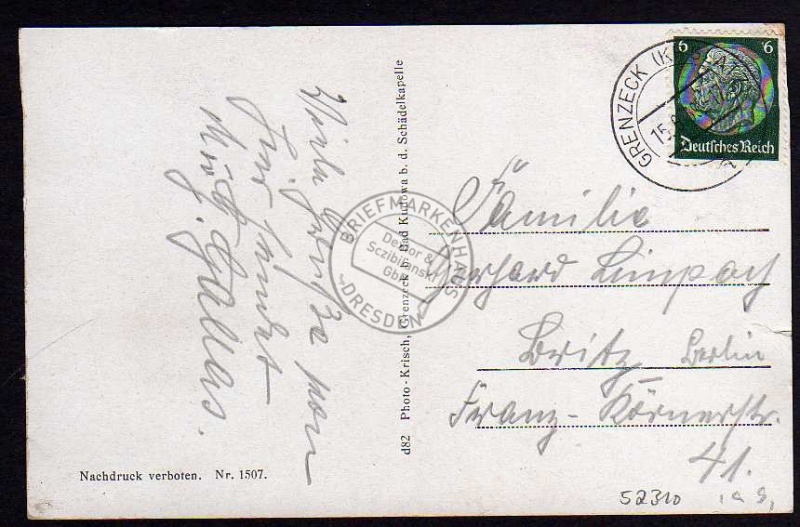 Viele Grüße von
hier sendet
G. Gallas.
Nachdruck verboten. Nr. 1507.
d82 Photo-Krisch, Grenzeck b. Bad Kudowa b. d. Schädelkapelle
6 6
Deutsches Reich
GRENZECK
15.
BRIEFMARKENHAUS
Dettor &
Sczibilanski
GbR
DRESDEN
Familie
Gerhard Limpach
Britz Berlin
Franz-Körnerstr.
41.
52310